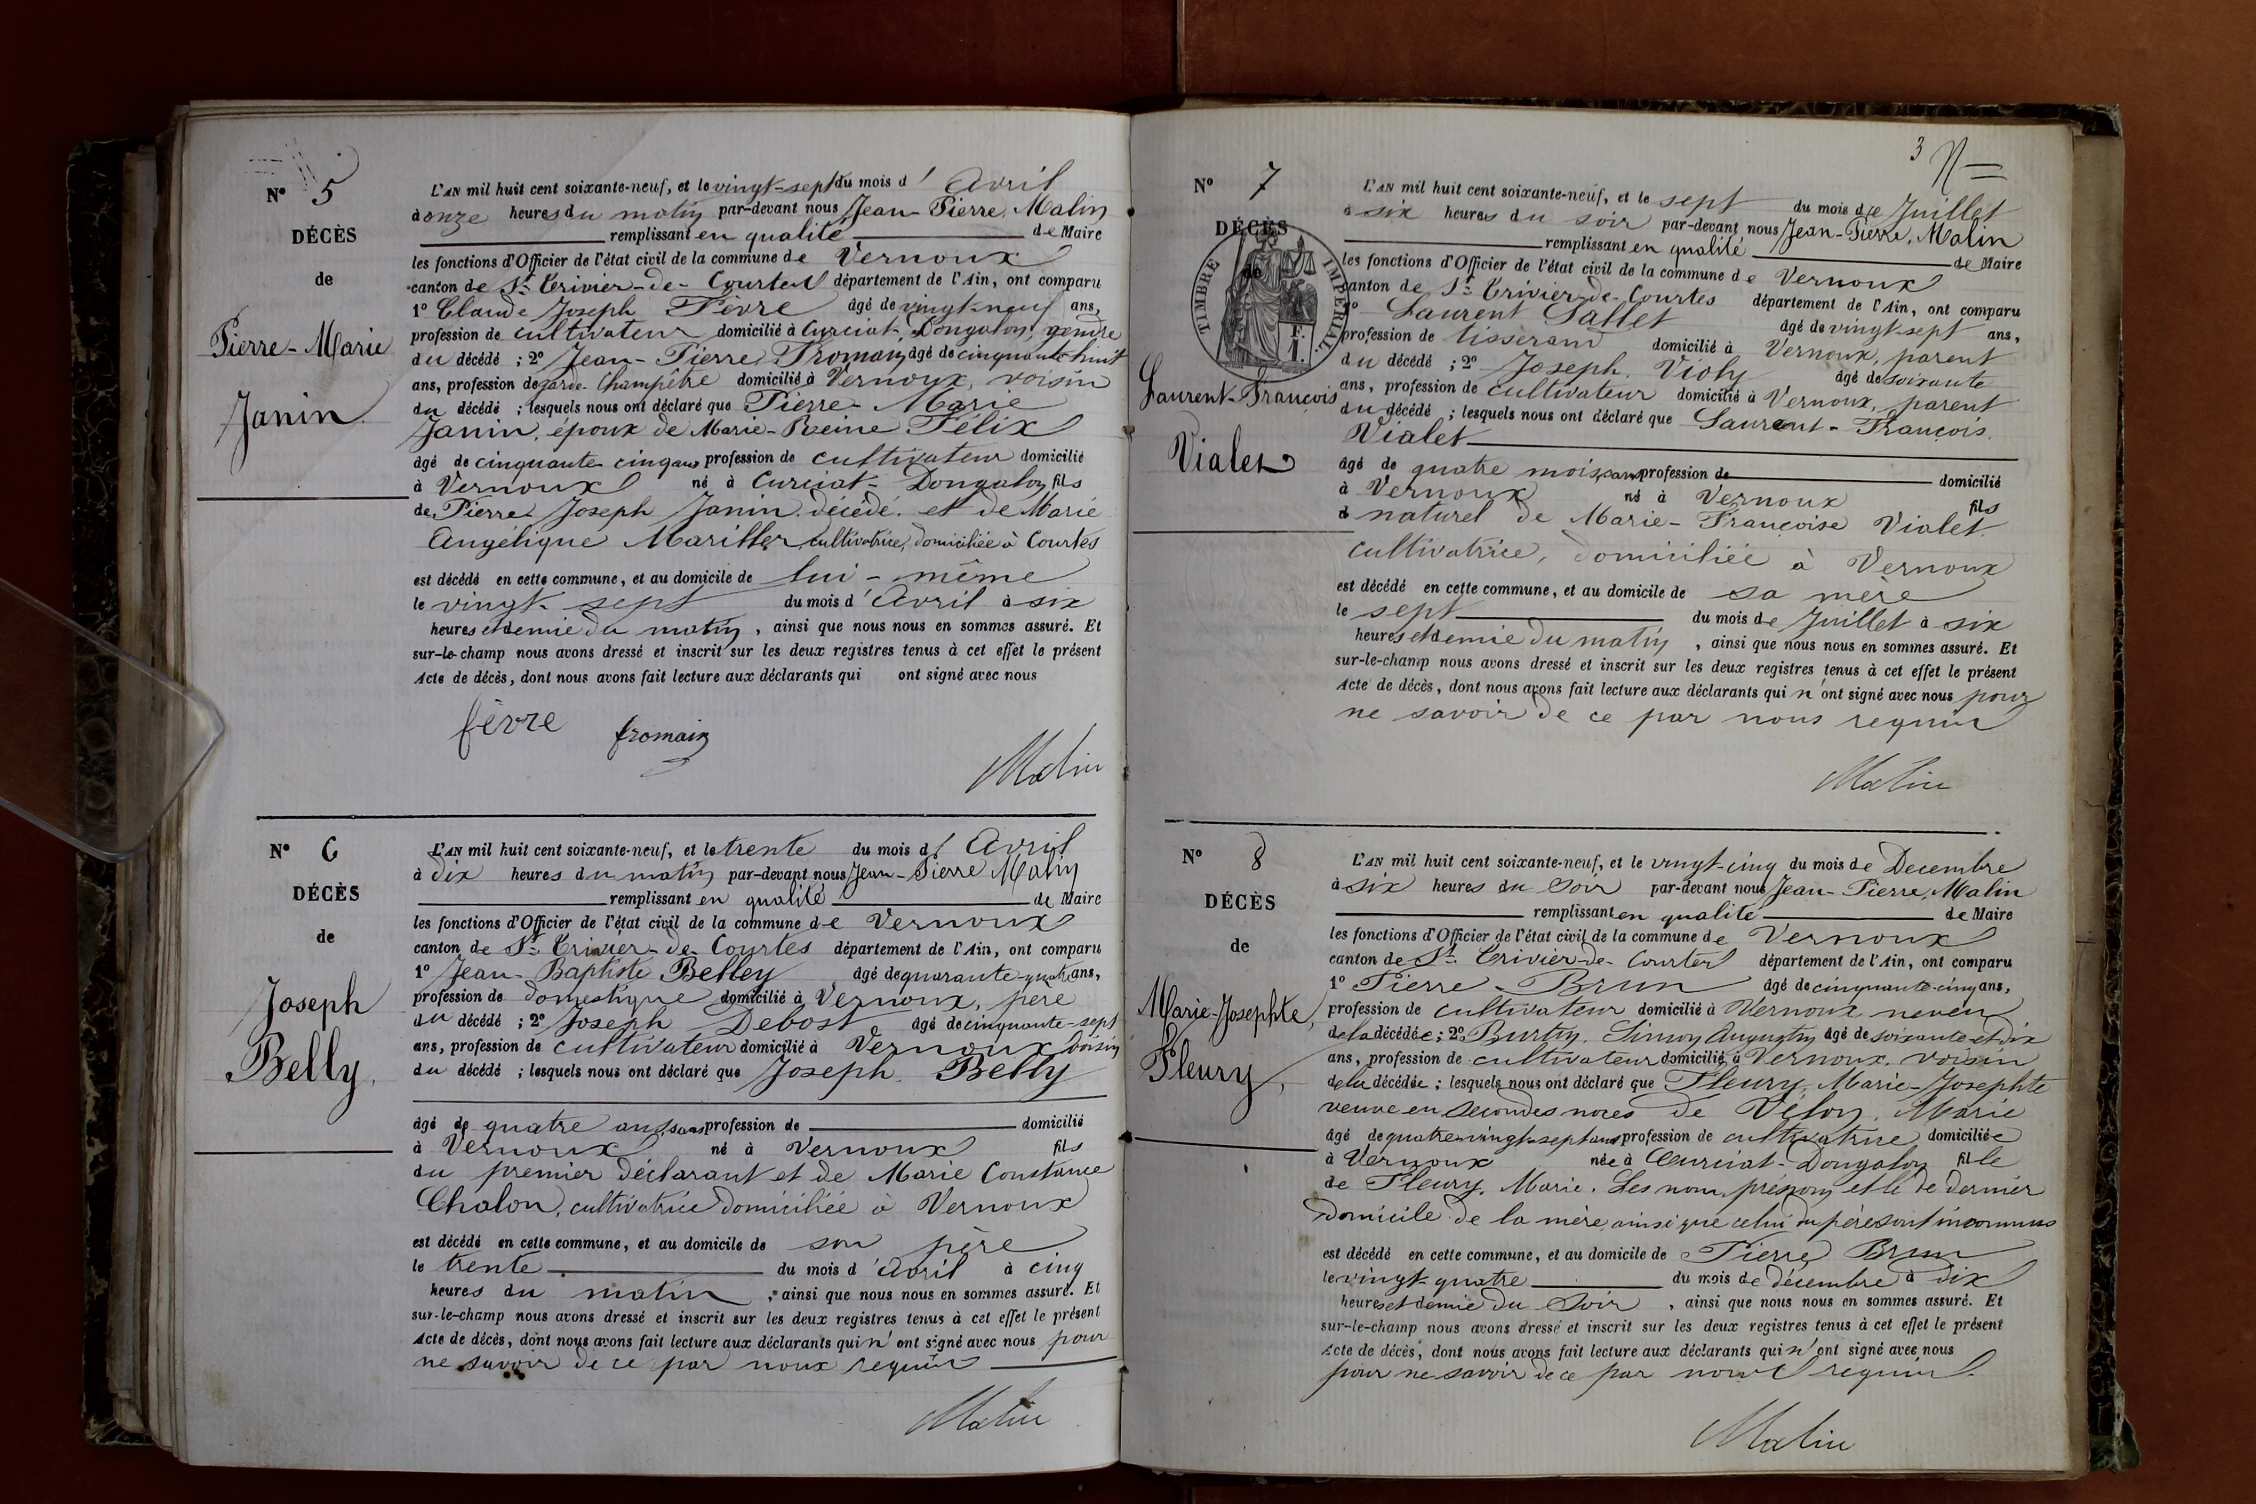 N° 5
DÉCÈS
de
Pierre-Marie
Janin.
L'AN mil huit cent soixante-neuf, et le vingt-sept du mois d'Avril
à onze heures du matin par-devant nous Jean-Pierre Malin
remplissant en qualité de Maire
les fonctions d'Officier de l'état civil de la commune de Vernoux
canton de St Trivier-de-Courtes département de l'Ain, ont comparu
1° Claude Joseph Fèvre âgé de vingt-neuf ans,
profession de cultivateur domicilié à Curciat-Dongalon, gendre
du décédé ; 2° Jean-Pierre Fromain âgé de cinquante huit
ans, profession de garde-Champêtre domicilié à Vernoux, voisin
du décédé ; lesquels nous ont déclaré que Pierre-Marie
Janin, époux de Marie-Reine Félix
âgé de cinquante cinq ans profession de cultivateur domicilié
à Vernoux né à Curciat-Dongalon fils
de Pierre Joseph Janin décédé et de Marie
Angélique Mariller, cultivatrice, domiciliée à Courtes
est décédé en cette commune, et au domicile de lui-même
le vingt-sept du mois d'Avril à six
heures et demie du matin, ainsi que nous nous en sommes assuré. Et
sur-le-champ nous avons dressé et inscrit sur les deux registres tenus à cet effet le présent
Acte de décès, dont nous avons fait lecture aux déclarants qui ont signé avec nous
fèvre fromain
Malin
N° 6
DÉCÈS
de
Joseph
Belly,
L'AN mil huit cent soixante-neuf, et le trente du mois d'Avril
à dix heures du matin par-devant nous Jean-Pierre Malin
remplissant en qualité de Maire
les fonctions d'Officier de l'état civil de la commune de Vernoux
canton de St Trivier-de-Courtes département de l'Ain, ont comparu
1° Jean-Baptiste Belley âgé de quarante-quatre ans,
profession de domestique domicilié à Vernoux, père
du décédé ; 2° Joseph Debost âgé de cinquante-sept
ans, profession de cultivateur domicilié à Vernoux voisin
du décédé ; lesquels nous ont déclaré que Joseph Belly
âgé de quatre ans, sans profession de domicilié
à Vernoux né à Vernoux fils
du premier déclarant et de Marie Constance
Chalon, cultivatrice domiciliée à Vernoux
est décédé en cette commune, et au domicile de son père
le trente du mois d'Avril à cinq
heures du matin, ainsi que nous nous en sommes assuré. Et
sur-le-champ nous avons dressé et inscrit sur les deux registres tenus à cet effet le présent
Acte de décès, dont nous avons fait lecture aux déclarants qui n'ont signé avec nous pour
ne savoir de ce par nous requis
Malin
3
N° 7
DÉCÈS
de
TIMBRE IMPÉRIAL
F. 1.
Laurent-François
Vialet
L'AN mil huit cent soixante-neuf, et le sept du mois de Juillet
à six heures du soir par-devant nous Jean-Pierre, Malin
remplissant en qualité de Maire
les fonctions d'Officier de l'état civil de la commune de Vernoux
canton de St Trivier-de-Courtes département de l'Ain, ont comparu
1° Laurent Sallet âgé de vingt-sept ans,
profession de tisserand domicilié à Vernoux, parent
du décédé ; 2° Joseph Violy âgé de soixante
ans, profession de cultivateur domicilié à Vernoux, parent
du décédé ; lesquels nous ont déclaré que Laurent-François
Vialet
âgé de quatre mois, sans profession de domicilié
à Vernoux né à Vernoux fils
d naturel de Marie-Françoise Vialet
cultivatrice, domiciliée à Vernoux
est décédé en cette commune, et au domicile de sa mère
le sept du mois de Juillet à six
heures et demie du matin, ainsi que nous nous en sommes assuré. Et
sur-le-champ nous avons dressé et inscrit sur les deux registres tenus à cet effet le présent
Acte de décès, dont nous avons fait lecture aux déclarants qui n'ont signé avec nous pour
ne savoir de ce par nous requis
Malin
N° 8
DÉCÈS
de
Marie-Josephte,
Fleury,
L'AN mil huit cent soixante-neuf, et le vingt-cinq du mois de Decembre
à six heures du Soir par-devant nous Jean-Pierre, Malin
remplissant en qualité de Maire
les fonctions d'Officier de l'état civil de la commune de Vernoux
canton de St Trivier-de-Courtes département de l'Ain, ont comparu
1° Pierre Brun âgé de cinquante-cinq ans,
profession de cultivateur domicilié à Vernoux, neveu
de la décédée ; 2° Burtin, Simon Augustin âgé de soixante et dix
ans, profession de cultivateur domicilié à Vernoux, voisin
de la décédée ; lesquels nous ont déclaré que Fleury, Marie-Josephte
veuve en secondes noces de Vélon, Marie
âgé de quatre-vingt-sept ans profession de cultivatrice domiciliée
à Vernoux née à Curciat-Dongalon fille
de Fleury, Marie. Les nom, prénom et le de dernier
domicile de la mère ainsi que celui du père sont inconnus
est décédé en cette commune, et au domicile de Pierre Brun
le vingt-quatre du mois de décembre à dix
heures et demie du Soir, ainsi que nous nous en sommes assuré. Et
sur-le-champ nous avons dressé et inscrit sur les deux registres tenus à cet effet le présent
Acte de décès, dont nous avons fait lecture aux déclarants qui n'ont signé avec nous
pour ne savoir de ce par nous requis.
Malin